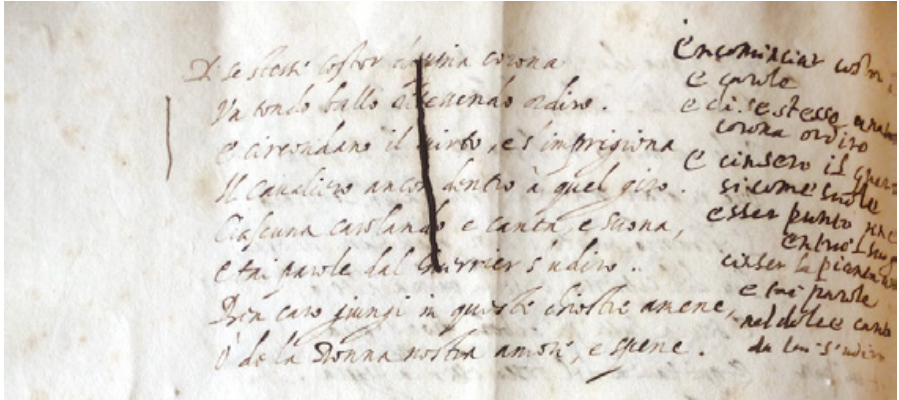 Di se stesse costor d'una corona
Un tondo ballo ottenendo ordiro.
e circondano il mirto, e s'imprigiona
Il Cavaliero ancor dentro à quel giro.
Ciascuna carolando e canta, e suona,
e tai parole dal Guerrier s'udiro.
Ben caro giungi in queste chiostre amene,
ò de la Donna nostra amore, e spene.
Cncominciar costor
e carole
e di se stesse
corona ordiro
e cinsero il
si come suole
esser punto
entro i suoi
cinser la pianta
e tai parole
nel dolce canto
da lui s'udiro